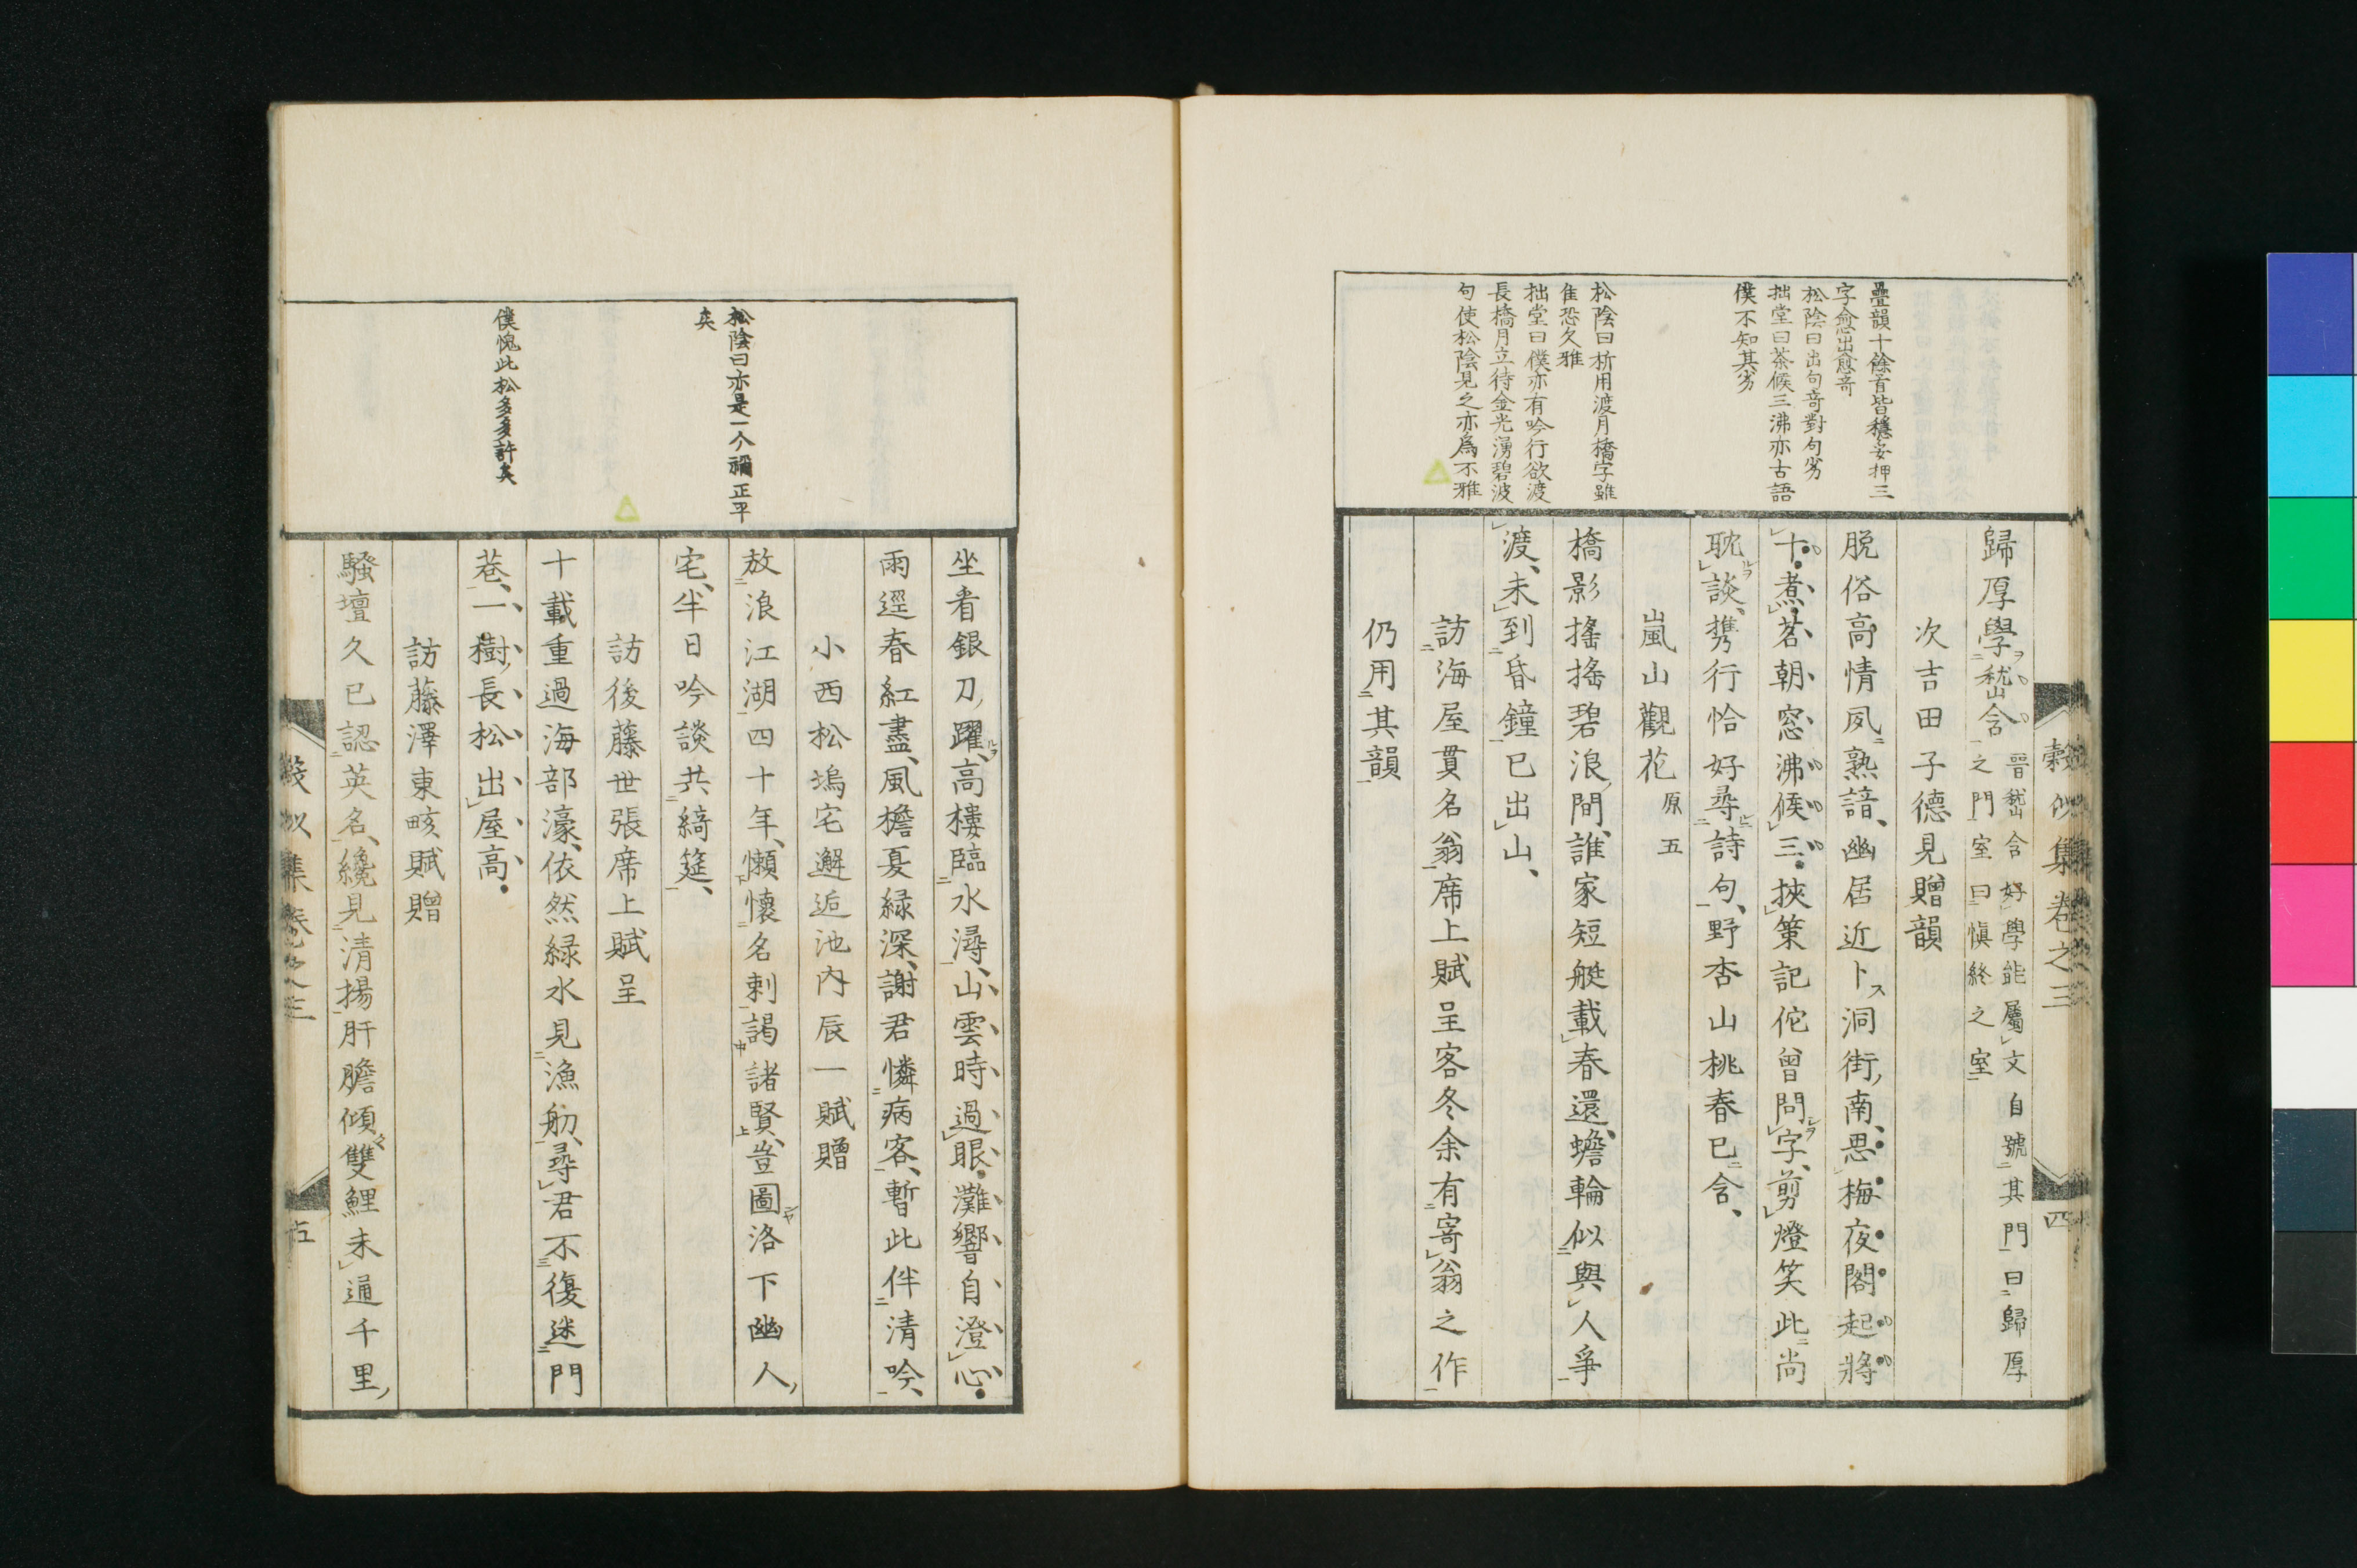 疊韻十餘首皆穩妥押三
字愈出愈奇
松陰曰出句奇對句劣
拙堂曰茶候三沸亦古語
僕不知其劣
松陰曰析用渡月橋字雖
隹恐久雅
拙堂曰僕亦有吟行欲渡
長橋月立待金光湧碧波
句使松陰見之亦爲不雅
歸厚學嵇含晉嵇含好學能屬文自號其門曰歸厚
之門室曰愼終之室
次吉田子德見贈韻
脱俗高情夙熟諳幽居近卜洞街南思梅夜閣起將
十煮茗朝窓沸候三挾策記佗曾問字剪燈笑此尚
耽談携行恰好尋詩句野杏山桃春已含
嵐山觀花原五
橋影搖搖碧浪間誰家短艇載春還蟾輪似與人爭
渡未到昏鐘已出山
訪海屋貫名翁席上賦呈客冬余有寄翁之作
仍用其韻
穀似集卷之三
四
松陰曰亦是一个禰正平
矣
僕愧此松多多許矣
坐看銀刀躍高樓臨水潯山雲時過眼灘響自澄心
雨逕春紅盡風檐夏緑深謝君憐病客暫此伴清吟
小西松塢宅邂逅池内辰一賦贈
放浪江湖四十年懶懷名刺謁諸賢豈圖洛下幽人
宅半日吟談共綺筵
訪後藤世張席上賦呈
十載重過海部濠依然緑水見漁舠尋君不復迷門
巷一樹長松出屋高
訪藤澤東畡賦贈
騷壇久已認英名纔見清揚肝膽傾雙鯉未通千里
穀似集卷之三
五